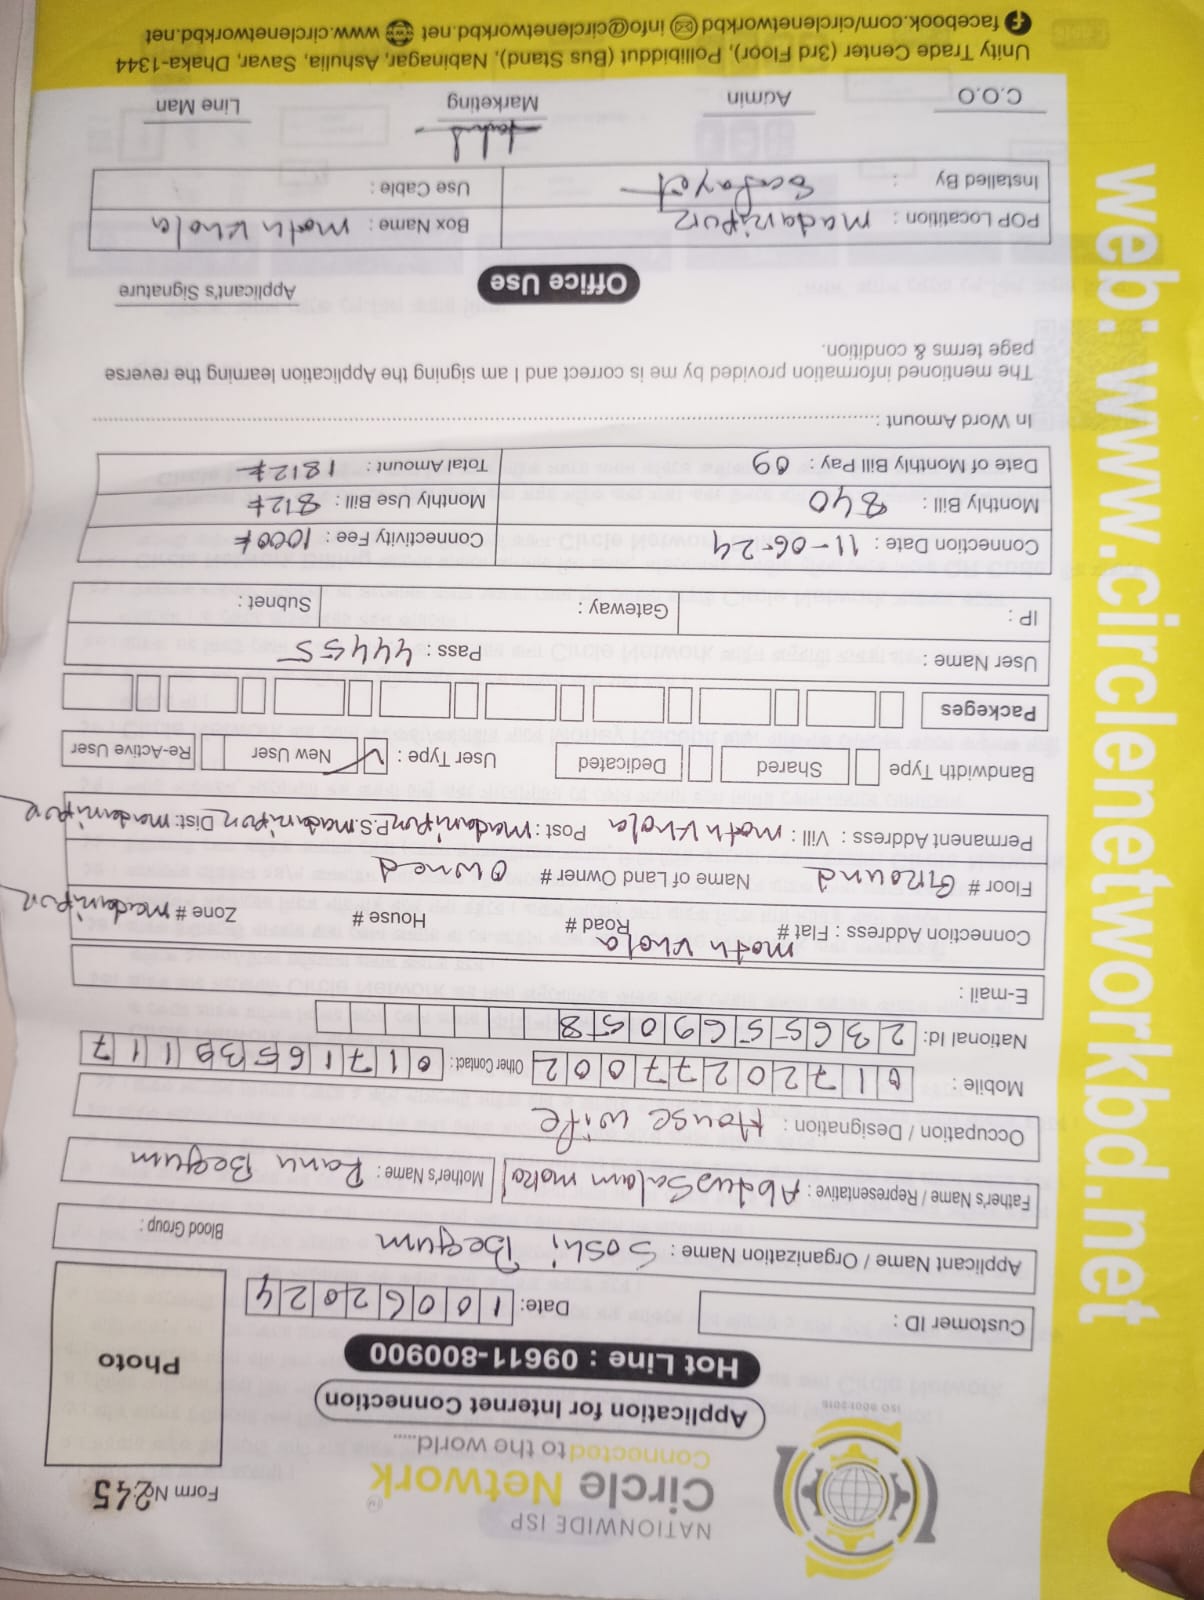 NATIONWIDE ISP
Circle Network
Connected to the world.....
ISO 9001:2015
Form No. 245
Application for Internet Connection
Hot Line : 09611-800900
Photo
Customer ID :
Date: 10062024
Applicant Name / Organization Name : Soshi Begum Blood Group :
Father's Name / Representative : Abdus Salam Mother's Name : Ranu Begum
Occupation / Designation : House wife
Mobile : 01720277002 Other Contact : 01716539117
National Id: 2365569058
E-mail :
Connection Address : Flat # moth khola Road # House # Zone # madaripur
Floor # Ground Name of Land Owner # owned
Permanent Address : Vill : moth khola Post : madaripur P.S. madaripur Dist: madaripur
Bandwidth Type Shared Dedicated User Type : ✓ New User Re-Active User
Packeges
User Name : Pass : 44455
IP : Gateway : Subnet :
Connection Date : 11-06-24 Connectivity Fee : 1000৳
Monthly Bill : 840 Monthly Use Bill : 812৳
Date of Monthly Bill Pay : 09 Total Amount : 1812৳
In Word Amount :
The mentioned information provided by me is correct and I am signing the Application learning the reverse
page terms & condition.
Applicant's Signature
Office Use
POP Locatition : madaripur Box Name : moth khola
Installed By : Safayet Use Cable :
C.O.O Admin Marketing Line Man
Unity Trade Center (3rd Floor), Pollibiddut (Bus Stand), Nabinagar, Ashulia, Savar, Dhaka-1344
facebook.com/circlenetworkbd info@circlenetworkbd.net www.circlenetworkbd.net
web: www.circlenetworkbd.net